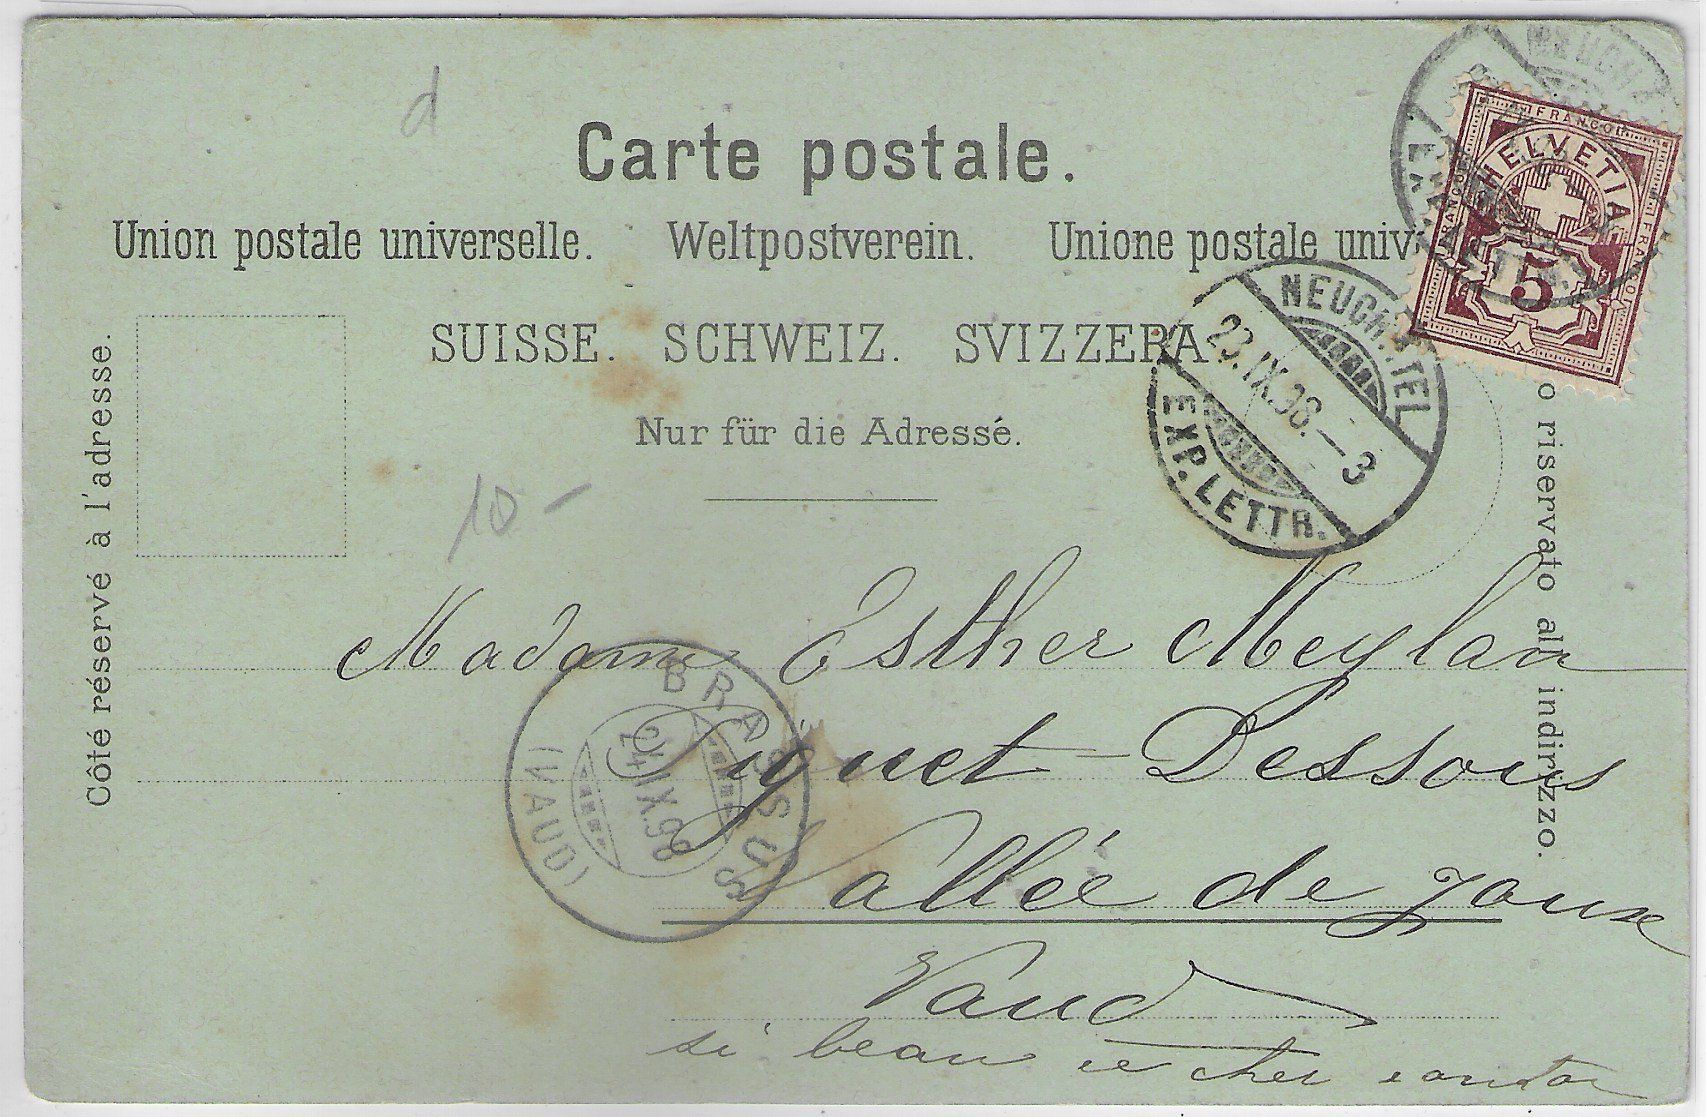 d
Carte postale.
Union postale universelle. Weltpostverein. Unione postale univ
SUISSE. SCHWEIZ. SVIZZERA
Nur für die Adresse.
Côté réservé à l'adresse.
o riservato all indirizzo.
FRANCO
HELVETIA
FRANCO
FRANCO
5
NEUCHATEL
EXP. LETTR.
NEUCHATEL
23.IX.98.-3
EXP. LETTR.
10-
Madame Esther Meylan
Piguet-Dessous
Vallée de Joux
Vaud
si beau ce cher canton
BRASSUS
24.IX.98
(VAUD)